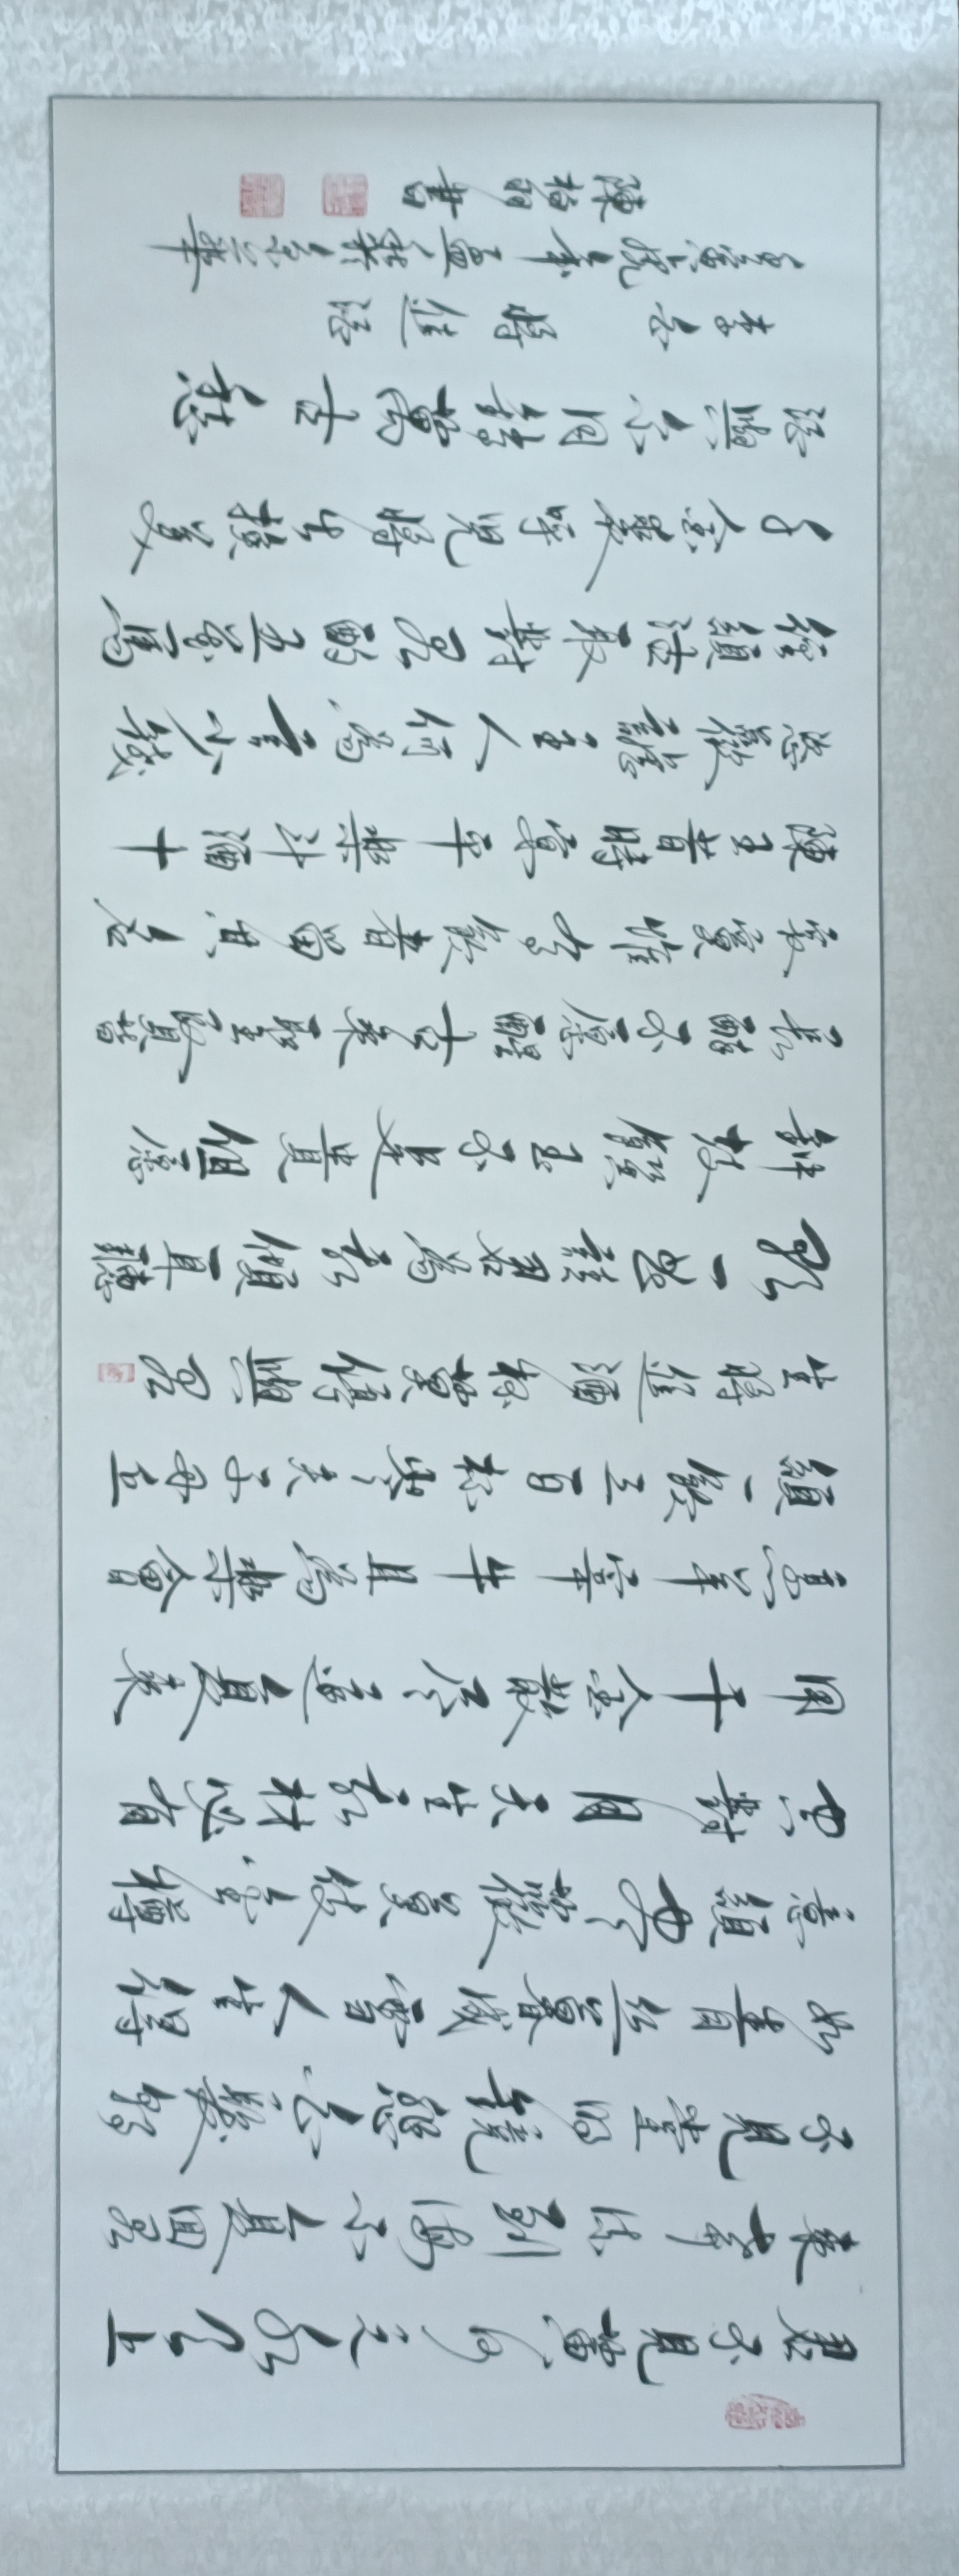 君不見黃河之水天上
來奔流到海不復回君
不見高堂明鏡悲白髮朝
如青絲暮成雪人生得
意須盡歡莫使金樽
空對月天生我材必有
用千金散盡還復來
烹羊宰牛且為樂會
須一飲三百杯岑夫子丹丘
生將進酒杯莫停與君
歌一曲請君為我傾耳聽
鐘鼓饌玉不足貴但願
長醉不復醒古來聖賢皆
寂寞惟有飲者留其名
陳王昔時宴平樂斗酒十
恣歡謔主人何為言少錢
徑須沽取對君酌五花馬
千金裘呼兒將出換美
酒與爾同銷萬古愁
李白 將進酒
陳 書